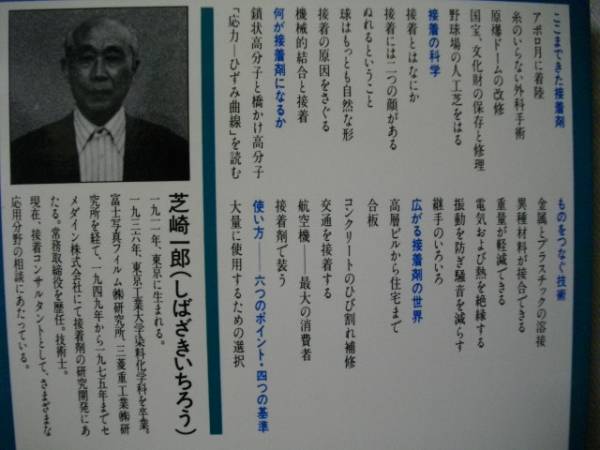 ここまできた接着剤
アポロ月に着陸
糸のいらない外科手術
原爆ドームの改修
国宝、文化財の保存と修理
野球場の人工芝をはる
接着の科学
接着とはなにか
接着には二つの顔がある
ぬれるということ
球はもっとも自然な形
接着の原因をさぐる
機械的結合と接着
何が接着剤になるか
鎖状高分子と橋かけ高分子
「応力―ひずみ曲線」を読む
ものをつなぐ技術
金属とプラスチックの溶接
異種材料が接合できる
重量が軽減できる
電気および熱を絶縁する
振動を防ぎ騒音を減らす
継手のいろいろ
広がる接着剤の世界
高層ビルから住宅まで
合板
コンクリートのひび割れ補修
交通を接着する
航空機――最大の消費者
接着剤で装う
使い方――六つのポイント・四つの基準
大量に使用するための選択
芝崎一郎(しばざきいちろう)
一九一一年、東京に生まれる。
一九三六年、東京工業大学染料化学科を卒業。
富士写真フイルム㈱研究所、三菱重工業㈱研
究所を経て、一九四九年から一九七五年までセ
メダイン株式会社にて接着剤の研究開発にあ
たる。常務取締役を歴任。技術士。
現在、接着コンサルタントとして、さまざまな
応用分野の相談にあたっている。